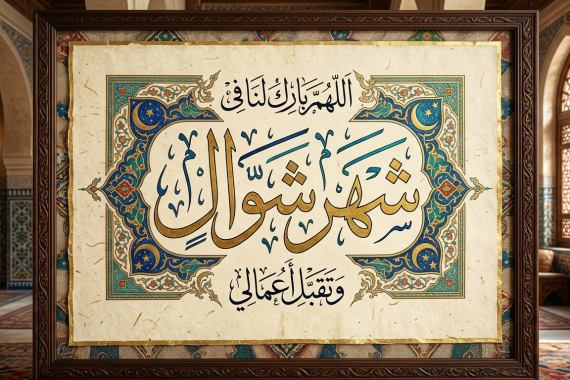 اَللّٰهُمَّ بَارِكْ لَنَا فِي
شَهْرِ شَوَّالٍ
وَتَقَبَّلْ أَعْمَالِي